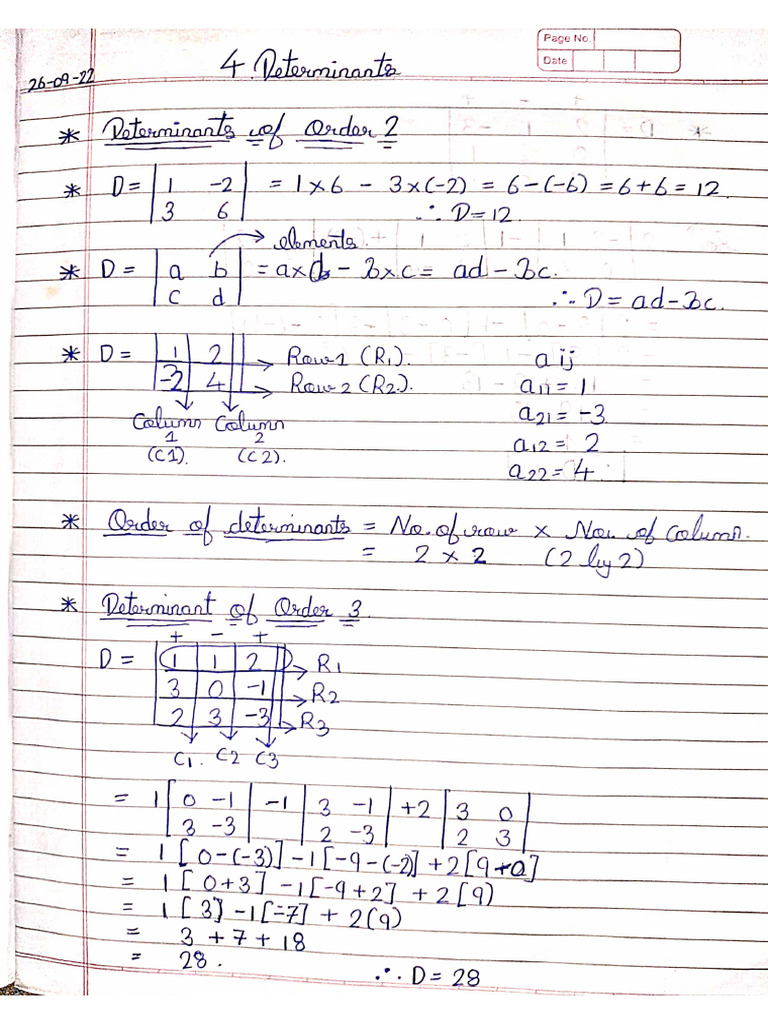 Page No.
Date
26-09-22
4. Determinants
* Determinants of Order 2
* D = | 1 -2 | = 1×6 - 3×(-2) = 6-(-6) = 6+6 = 12.
| 3 6 | ∴ D = 12.
→ elements
* D = | a b | = a×d - b×c = ad - bc.
| c d | ∴ D = ad-bc.
* D = | 1 2 | → Row 1 (R1). a ij
| -3 4 | → Row 2 (R2). a11 = 1
Column Column a21 = -3
1 2 a12 = 2
(C1). (C2). a22 = 4.
* Order of determinants = No. of row × No. of Column.
= 2 × 2 (2 by 2)
* Determinant of Order 3
+ - +
D = | 1 1 2 | → R1
| 3 0 -1 | → R2
| 2 3 -3 | → R3
C1. C2 C3
= 1 | 0 -1 | -1 | 3 -1 | +2 | 3 0 |
| 3 -3 | | 2 -3 | | 2 3 |
= 1 [0-(-3)] -1[-9-(-2)] +2[9+0]
= 1 [0+3] -1[-9+2] + 2(9)
= 1 [3] -1[-7] + 2(9)
= 3 + 7 + 18
= 28.
∴ D = 28